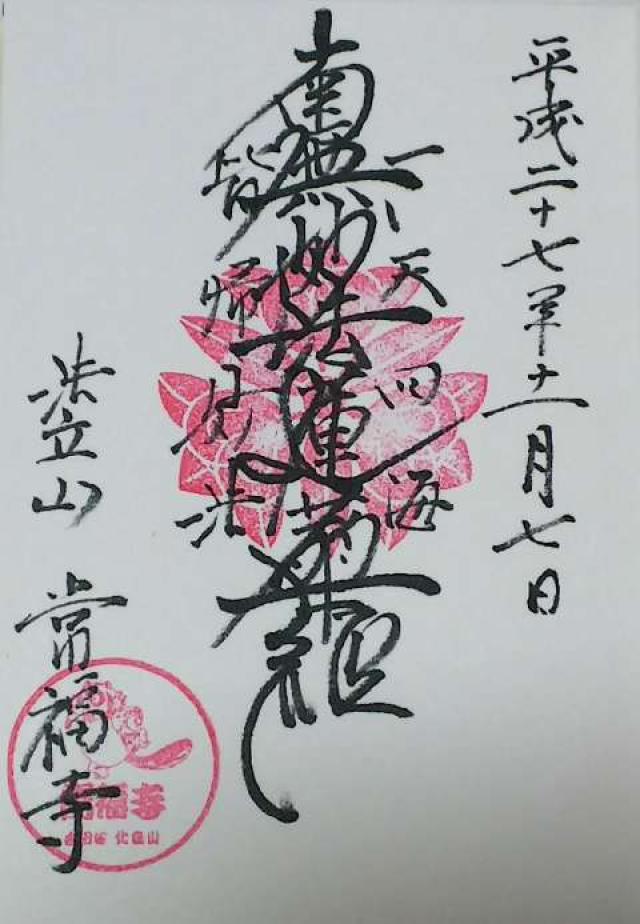 平成二十七年十一月七日
一天四海
南無妙法蓮華経
皆帰妙法
法立山
常福寺
常福寺